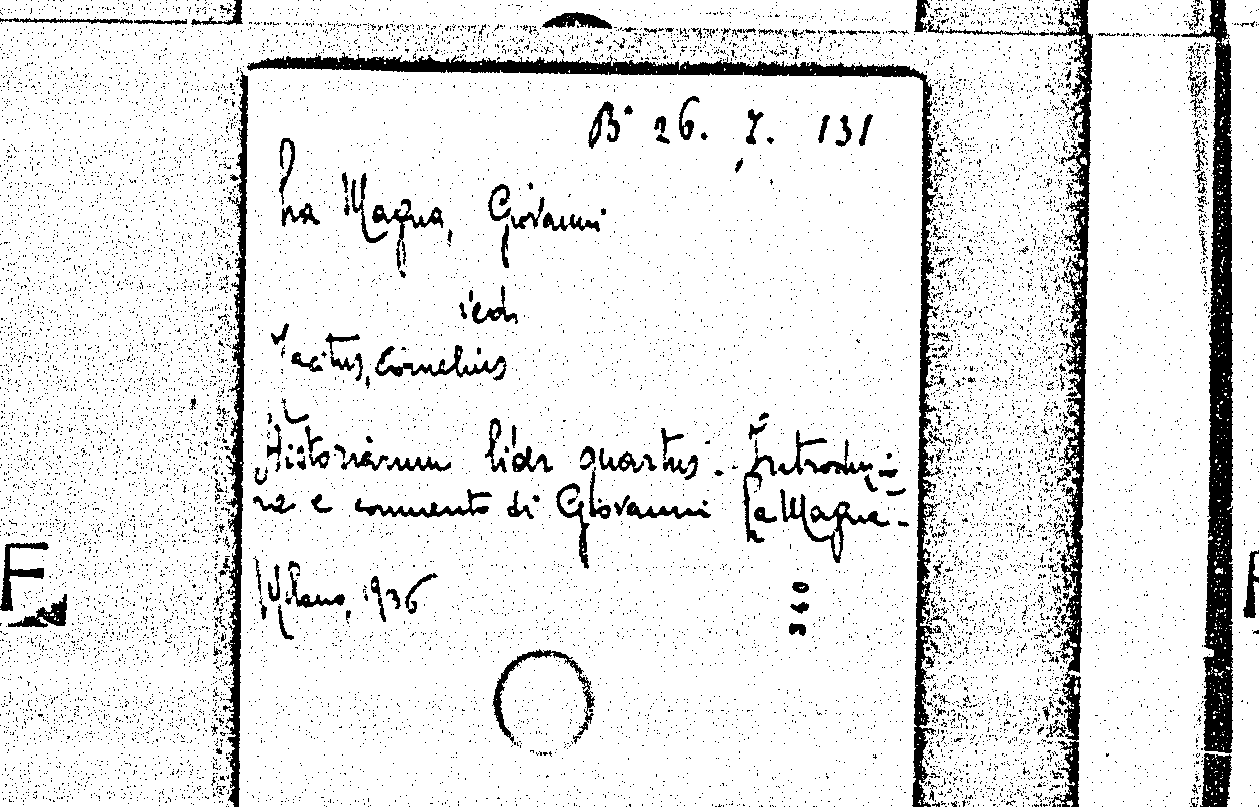 B° 26. 7. 131
La Magna, Giovanni
vedi
Tacitus, Cornelius
Historiarum liber quartus. Introduzio=
ne e commento di Giovanni La Magna.
Milano, 1936
360
F